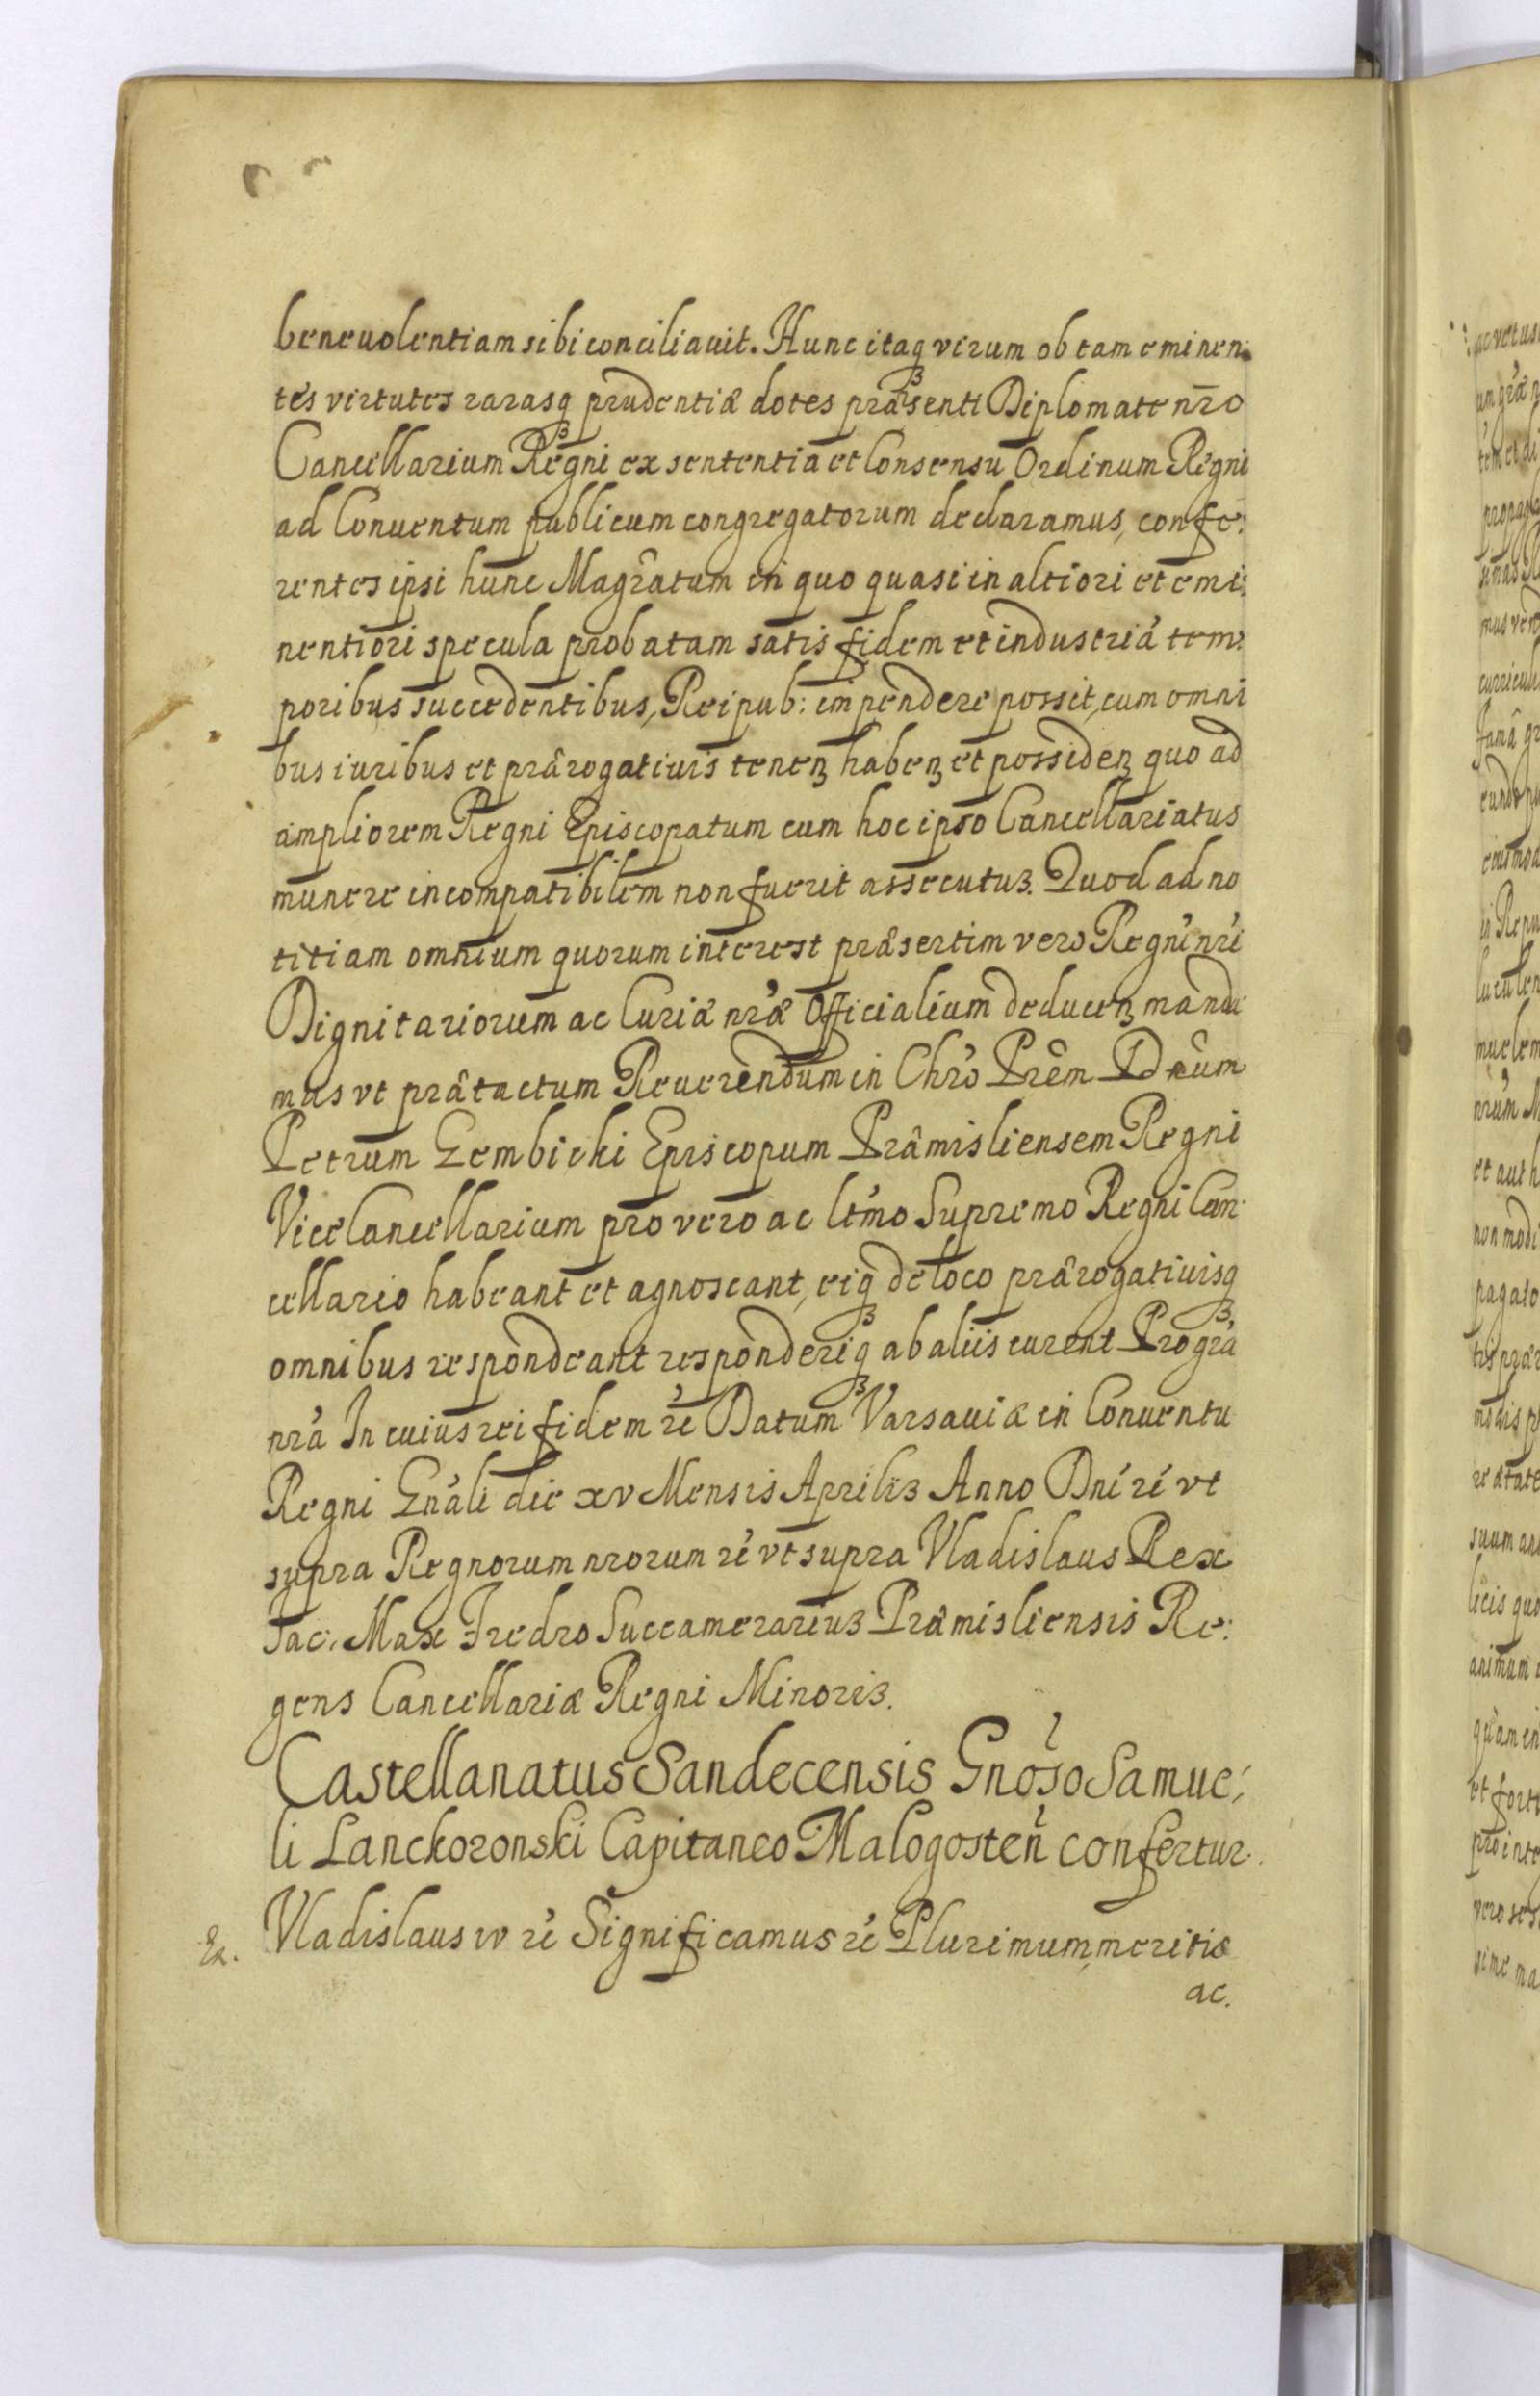 beneuolentiam sibi conciliauit. Hunc itaq3 virum ob tam eminen:
tes virtutes rarasq3 prudentiæ dotes præsenti Diplomate nr̄o
Cancellarium Regni ex sententia et Consensu Ordinum Regni
ad Conuentum publicum congregatorum declaramus, confe:
rentes ipsi hunc Magrâtum in quo quasi in altiori et emi:
nentiori specula probatam satis fidem et industriá tem:
poribus succedentibus, Reipub: impendere possit, cum omni
bus iuribus et prârogatiuis tenen3 haben3 et possiden3 quo ad
ampliorem Regni Episcopatum cum hoc ipso Cancellariatus
munere incompatibilem non fuerit assecutus. Quod ad no
titiam omnium quorum interest præsertim vero Regni nr̍i
Dignitariorum ac Curiæ nr̍æ Officialium deducen3 manda
mus vt prâtactum Reuerendum in Chr̍o Prêm Dnûm
Petrum Gembicki Episcopum Prâmisliensem Regni
ViceCancellarium pro vero ac ltm̍o Supremo Regni Can:
cellario habeant et agnoscant, eiq3 de loco prârogatiuisq3
omnibus respondeant responderiq3 ab aliis curent Pro gr̍a
nr̍a In cuius rei fidem ré Datum Varsauiæ in Conuentu
Regni Gnáli die xv Mensis Aprilis Anno Dní ré vt
supra Regnorum nrorum ré vt supra Vladislaus Rex
Jac: Max Fredro Succamerarius Præmisliensis Re:
gens Cancellariæ Regni Minoris.
Castellanatus Sandecensis Gnoso Samue:
li Lanckoronski Capitaneo Malogosteń confertur.
Vladislaus iv ré Significamus ré Plurimum meritis
ac.